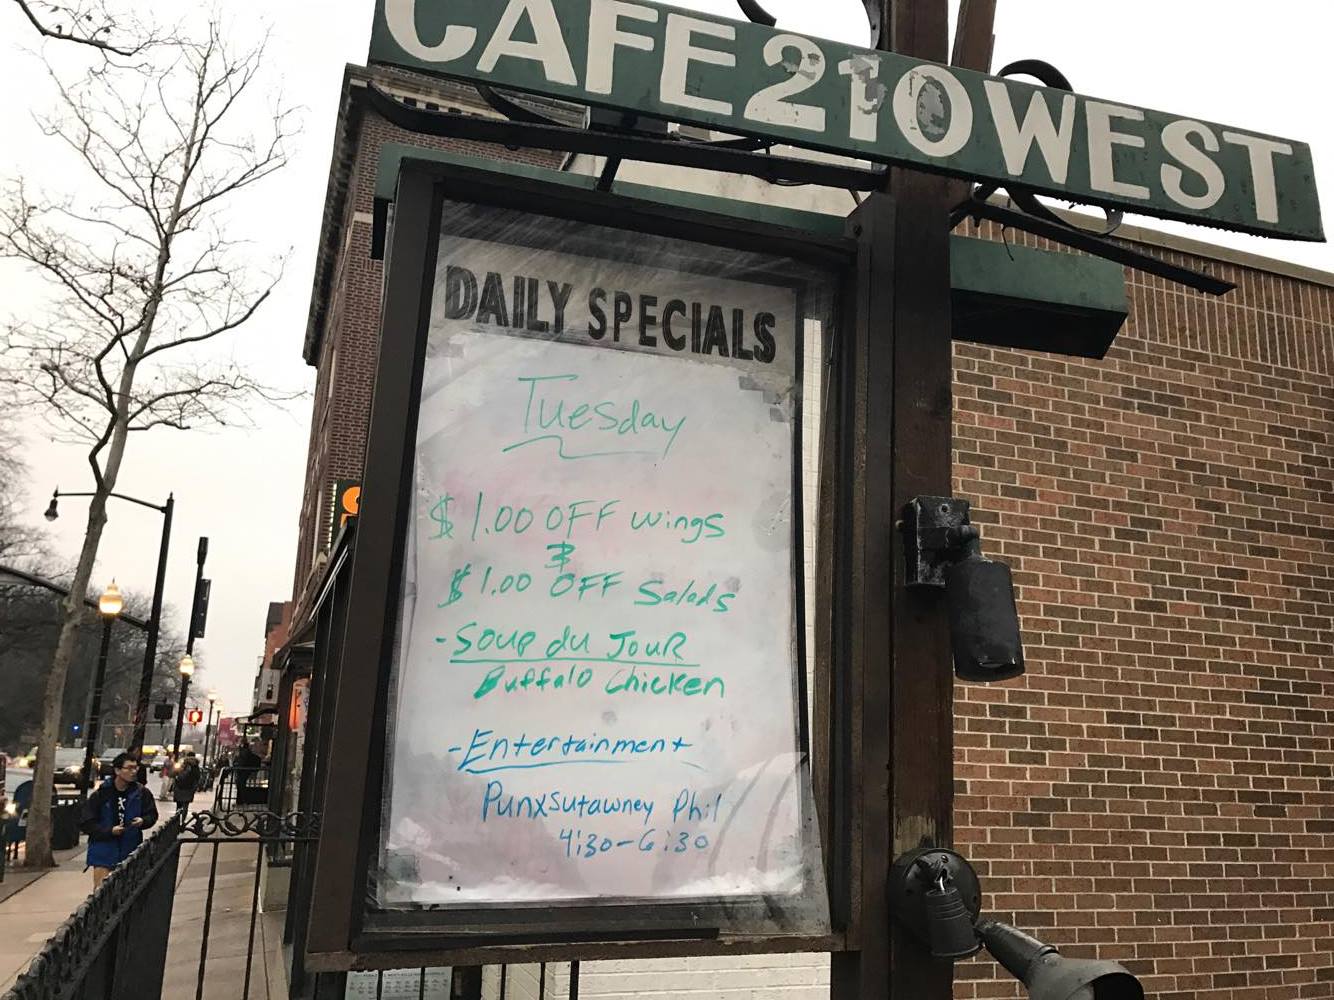 CAFE 210 WEST
DAILY SPECIALS
Tuesday
$1.00 OFF wings
&
$1.00 OFF Salads
- Soup du JouR
Buffalo Chicken
- Entertainment
Punxsutawney Phil
4:30-6:30